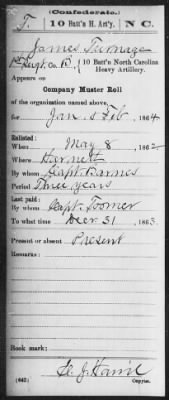 (Confederate.)
T 10 Batt'n H. Art'y. N C.
James Turnage
1st Sergt. Co. B, 10 Batt'n North Carolina
Heavy Artillery.
Appears on
Company Muster Roll
of the organization named above,
for Jan. & Feb, 1864
Enlisted:
When May 8, 1862
Where Harnett
By whom Capt. Barnes
Period Three years
Last paid:
By whom Capt. Toomer
To what time Decr. 31, 1863.
Present or absent Present
Remarks:
Book mark:
(642) Copyist.